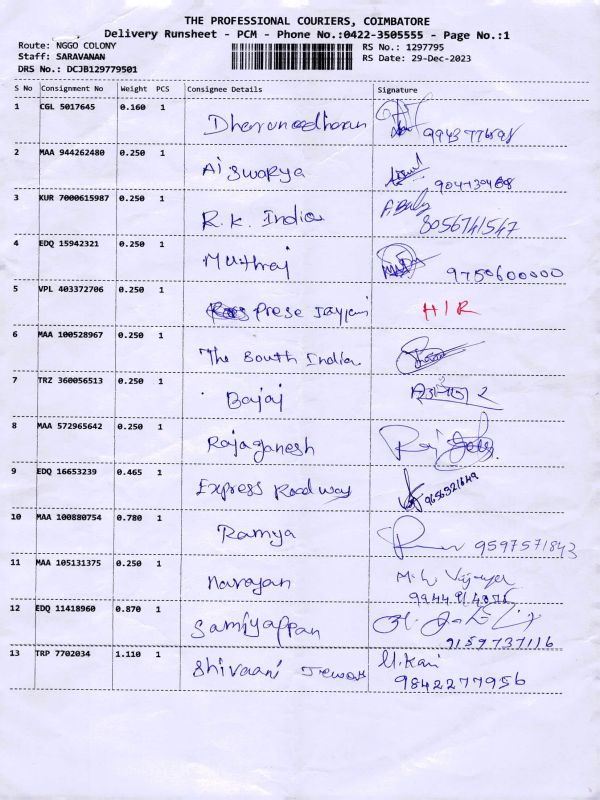 THE PROFESSIONAL COURIERS, COIMBATORE
Delivery Runsheet - PCM - Phone No.:0422-3505555 - Page No.:1
Route: NGGO COLONY RS No.: 1297795
Staff: SARAVANAN RS Date: 29-Dec-2023
DRS No.: DCJB129779501
S No Consignment No Weight PCS Consignee Details Signature
1 CGL 5017645 0.160 1
Dharuneedharan
2 MAA 944262480 0.250 1
Aiswarya
3 KUR 7000615987 0.250 1
R.K. India 8056741547
4 EDQ 15942321 0.250 1
Muthraj 9750600000
5 VPL 403372706 0.250 1
Prese H/R
6 MAA 100528967 0.250 1
The South India
7 TRZ 360056513 0.250 1
Bajaj
8 MAA 572965642 0.250 1
Rajaganesh
9 EDQ 16653239 0.465 1
Express Roadway 9656521649
10 MAA 100880754 0.780 1
Ramya 9597571843
11 MAA 105131375 0.250 1
Narayan
12 EDQ 11418960 0.870 1
Samiyappan 9159737116
13 TRP 7702034 1.110 1
Shivaani 9842277956